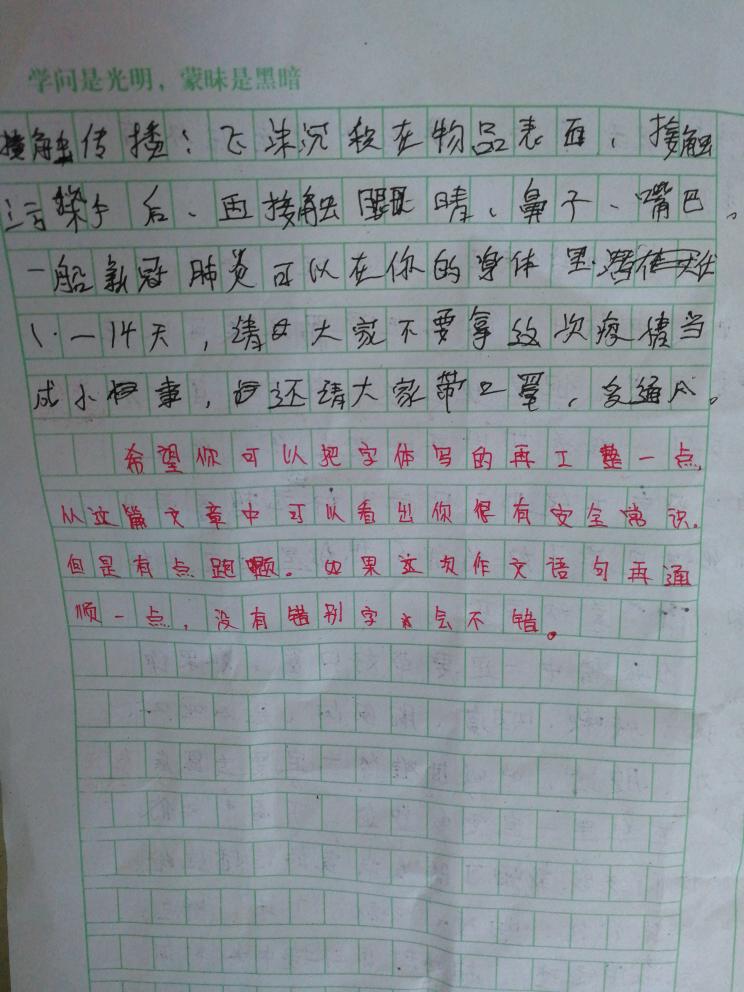 学问是光明，蒙昧是黑暗
接触传播：飞沫沉积在物品表面，接触
污染手后、再接触眼晴、鼻子、嘴巴。
一船新冠肺炎可以在你的身体里潜伏
1·一14天，请大家不要拿这次疫情当
成小事，还请大家带口罩，多通风。
希望你可以把字体写的再工整一点，
从这篇文章中可以看出你很有安全常识，
但是有点跑题。如果这次作文语句再通
顺一点，没有错别字会不错。